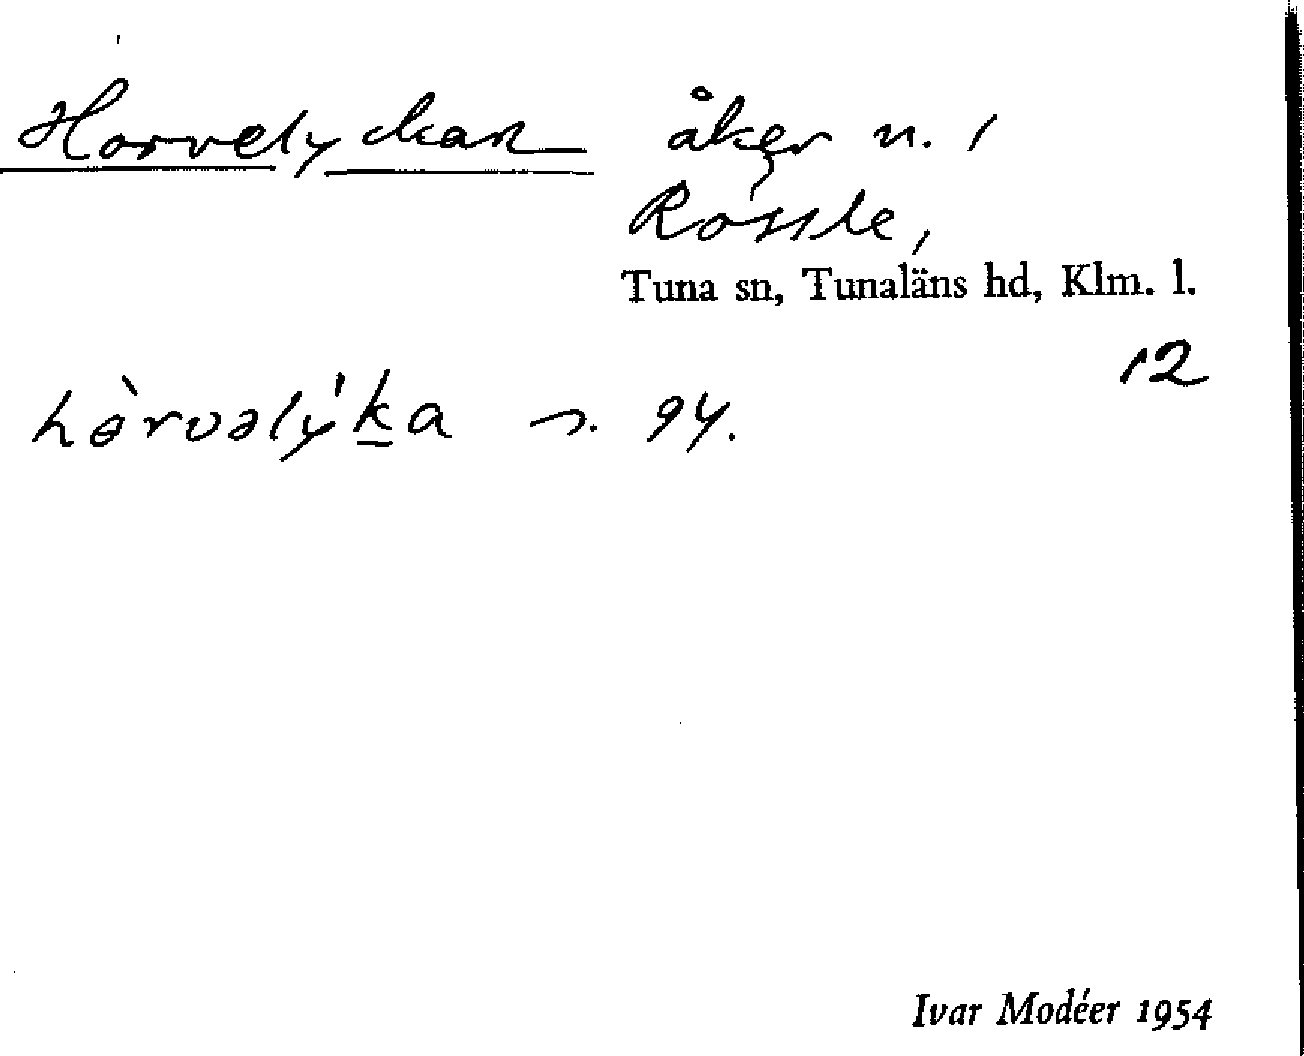 Horvelyckan åker n. 1
Rössle,
Tuna sn, Tunaläns hd, Klm. l.
12
hòrvəlýka s. 94.
Ivar Modéer 1954